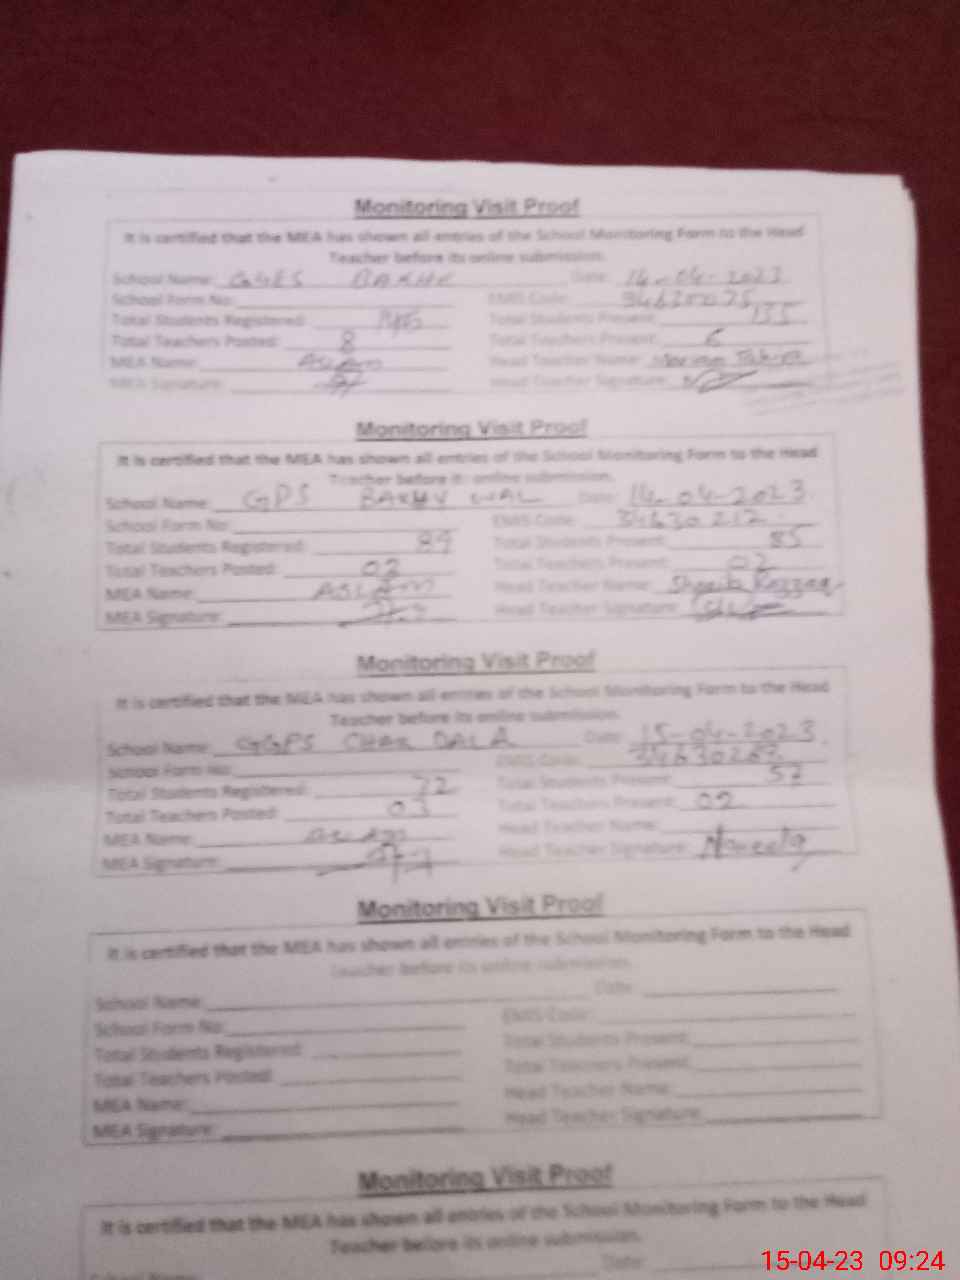 Monitoring Visit Proof
It is certified that the MEA has shown all entries of the School Monitoring Form to the Head
Teacher before its online submission.
School Name: GGES BAKHU Date: 14-04-2023
School Form No: EMIS Code: 34630075
Total Students Registered: Total Students Present: 135
Total Teachers Posted: 8 Total Teachers Present: 6
MEA Name: ASLAM Head Teacher Name: Tahira
MEA Signature: Head Teacher Signature:
Monitoring Visit Proof
It is certified that the MEA has shown all entries of the School Monitoring Form to the Head
Teacher before its online submission.
School Name: GPS BAKHU WAL Date: 14-04-2023
School Form No: EMIS Code: 34630212
Total Students Registered: 89 Total Students Present: 85
Total Teachers Posted: 02 Total Teachers Present: 02
MEA Name: ASLAM Head Teacher Name: Shoaib Razzaq
MEA Signature: Head Teacher Signature:
Monitoring Visit Proof
It is certified that the MEA has shown all entries of the School Monitoring Form to the Head
Teacher before its online submission.
School Name: GGPS CHAK DALA Date: 15-04-2023
School Form No: EMIS Code: 34630267
Total Students Registered: 72 Total Students Present: 57
Total Teachers Posted: 03 Total Teachers Present: 02
MEA Name: ASLAM Head Teacher Name:
MEA Signature: Head Teacher Signature: Naveela
Monitoring Visit Proof
It is certified that the MEA has shown all entries of the School Monitoring Form to the Head
Teacher before its online submission.
School Name: Date:
School Form No: EMIS Code:
Total Students Registered: Total Students Present:
Total Teachers Posted: Total Teachers Present:
MEA Name: Head Teacher Name:
MEA Signature: Head Teacher Signature:
Monitoring Visit Proof
It is certified that the MEA has shown all entries of the School Monitoring Form to the Head
Teacher before its online submission.
School Name: Date:
15-04-23 09:24